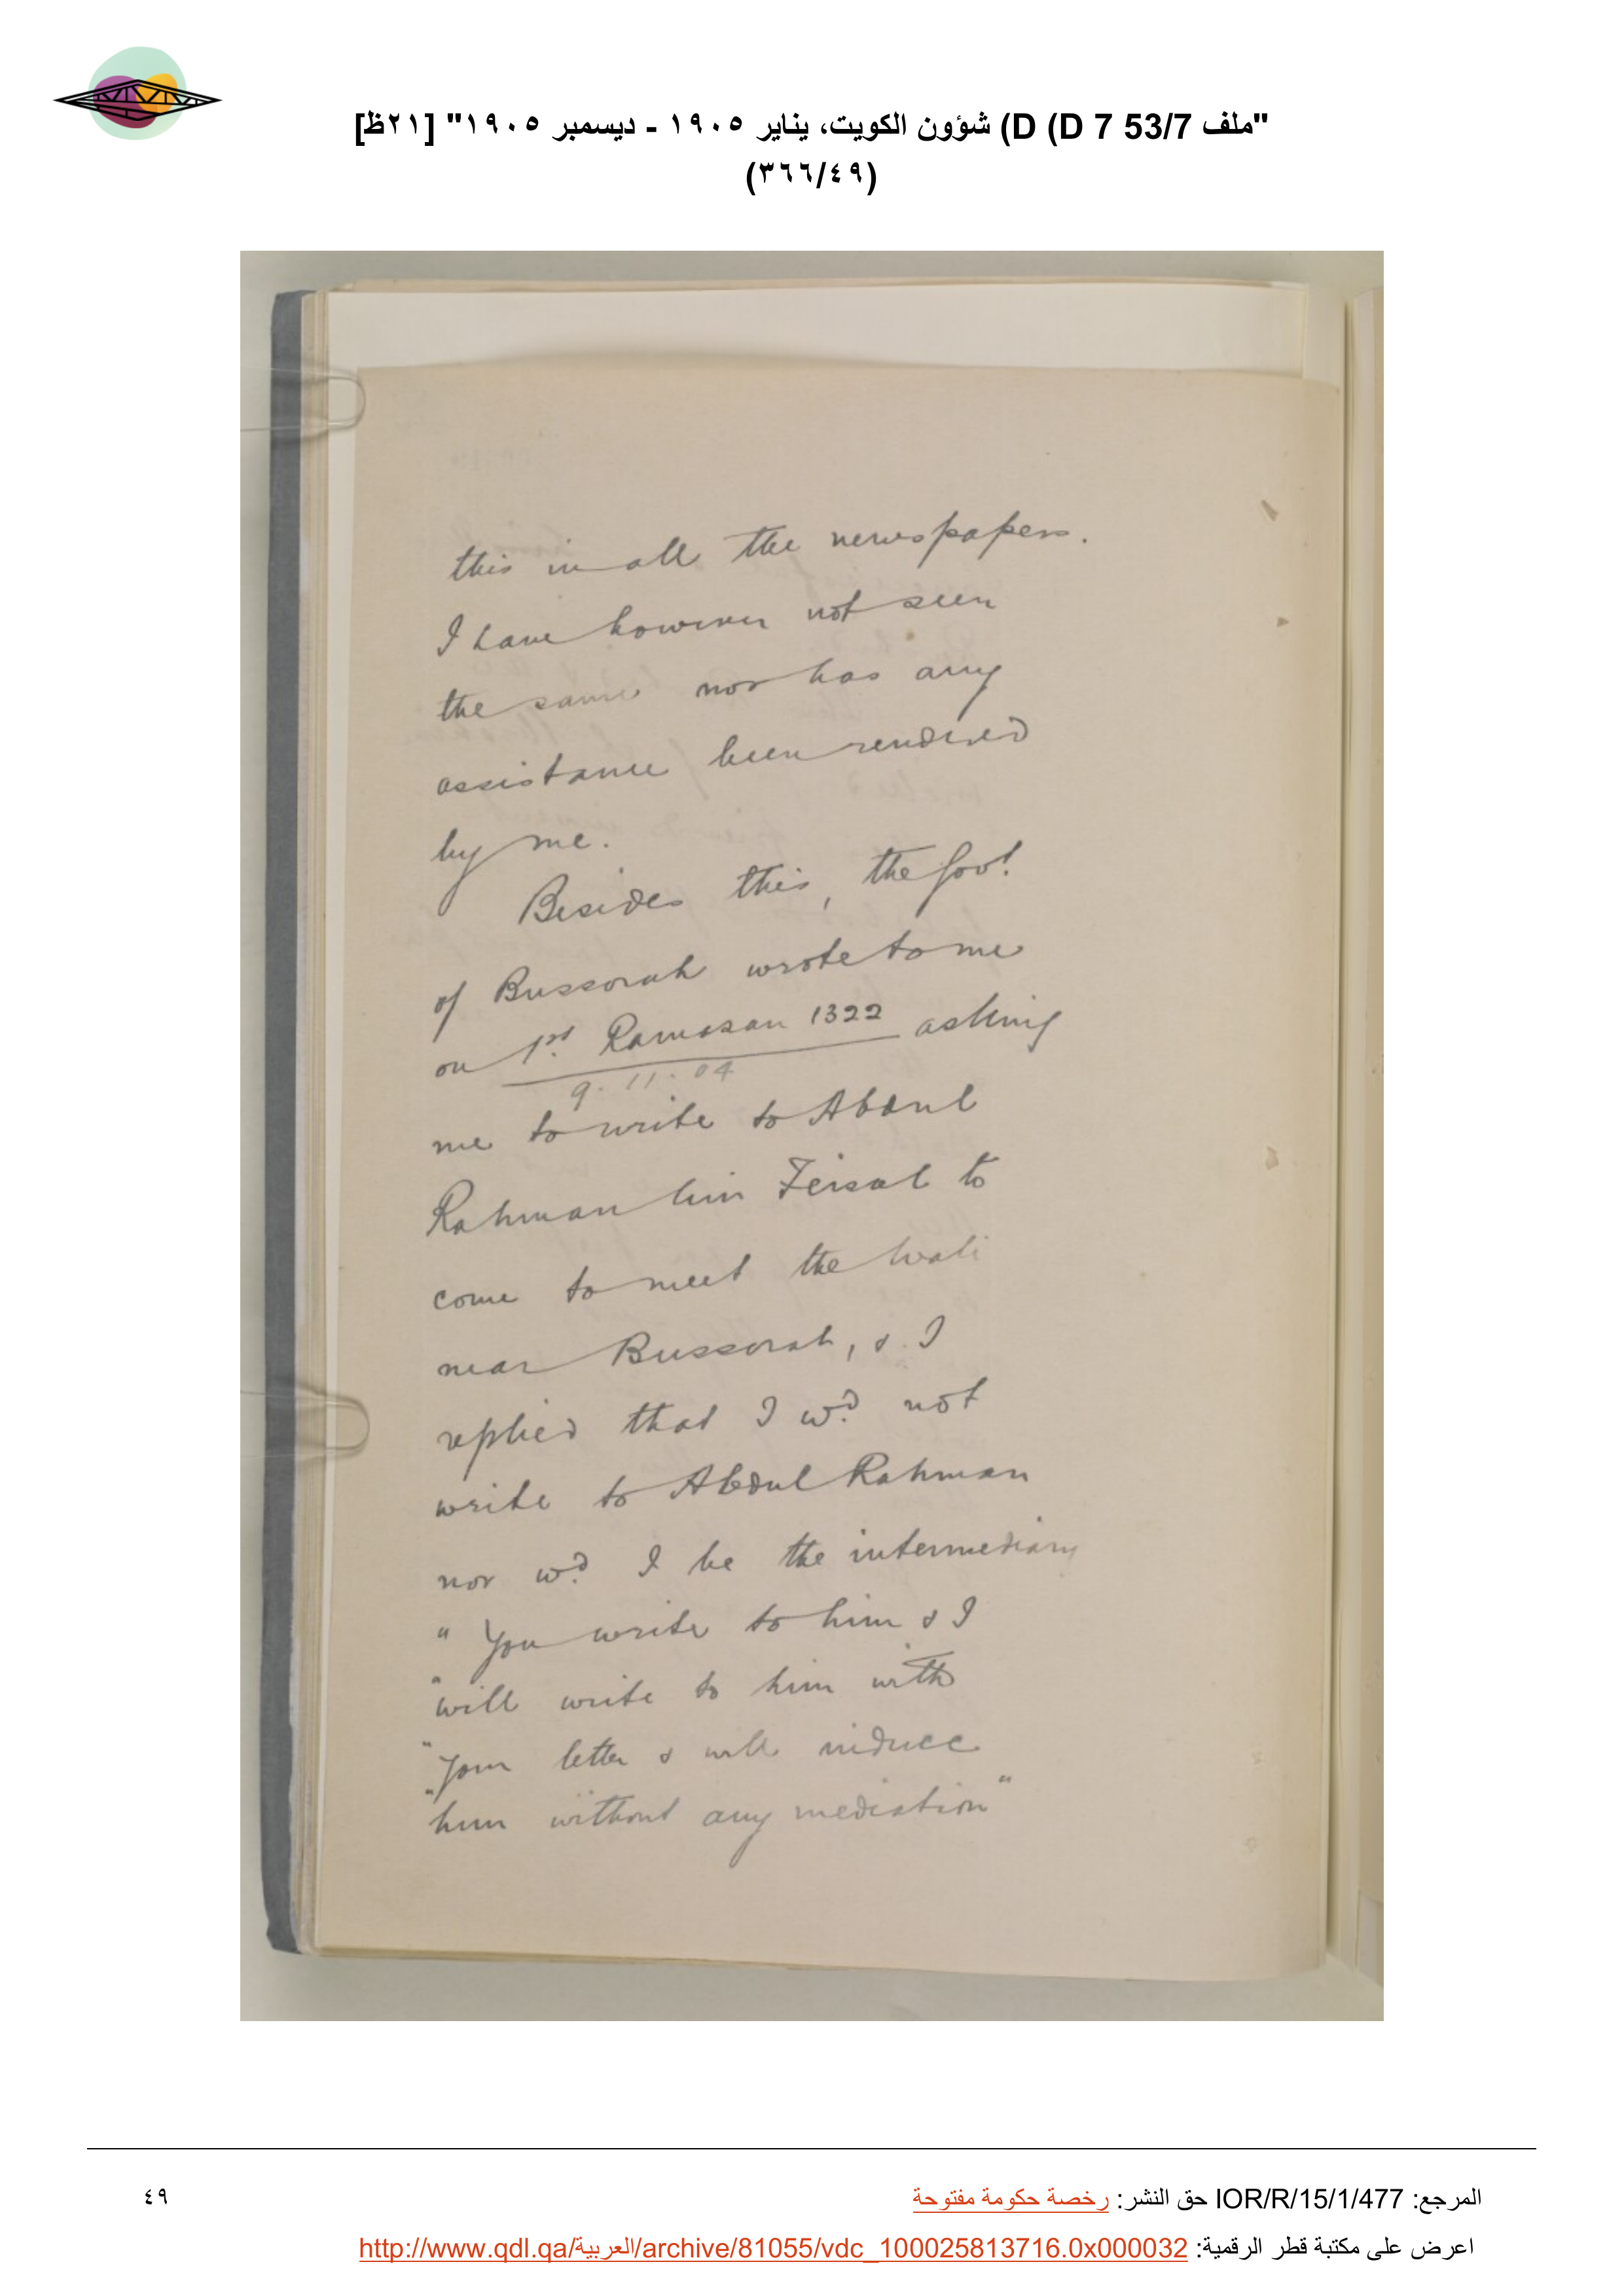 "ملف 53/7 D 7 D) شؤون الكويت، يناير ١٩٠٥ - ديسمبر ١٩٠٥" [٢١ظ]
(٣٦٦/٤٩)
this in all the newspapers.
I have however not seen
the same nor has any
assistance been rendered
by me.
Besides this, the Govt
of Bussorah wrote to me
on 1st. Ramazan 1322 asking
9.11.04
me to write to Abdul
Rahman bin Feisal to
come to meet the Wali
near Bussorah, & I
replied that I wd. not
write to Abdul Rahman
nor wd. I be the intermediary
" You write to him & I
"will write to him with
"your letter & will induce
"him without any mediation"
المرجع: IOR/R/15/1/477 حق النشر: رخصة حكومة مفتوحة
٤٩
اعرض على مكتبة قطر الرقمية: http://www.qdl.qa/العربية/archive/81055/vdc_100025813716.0x000032